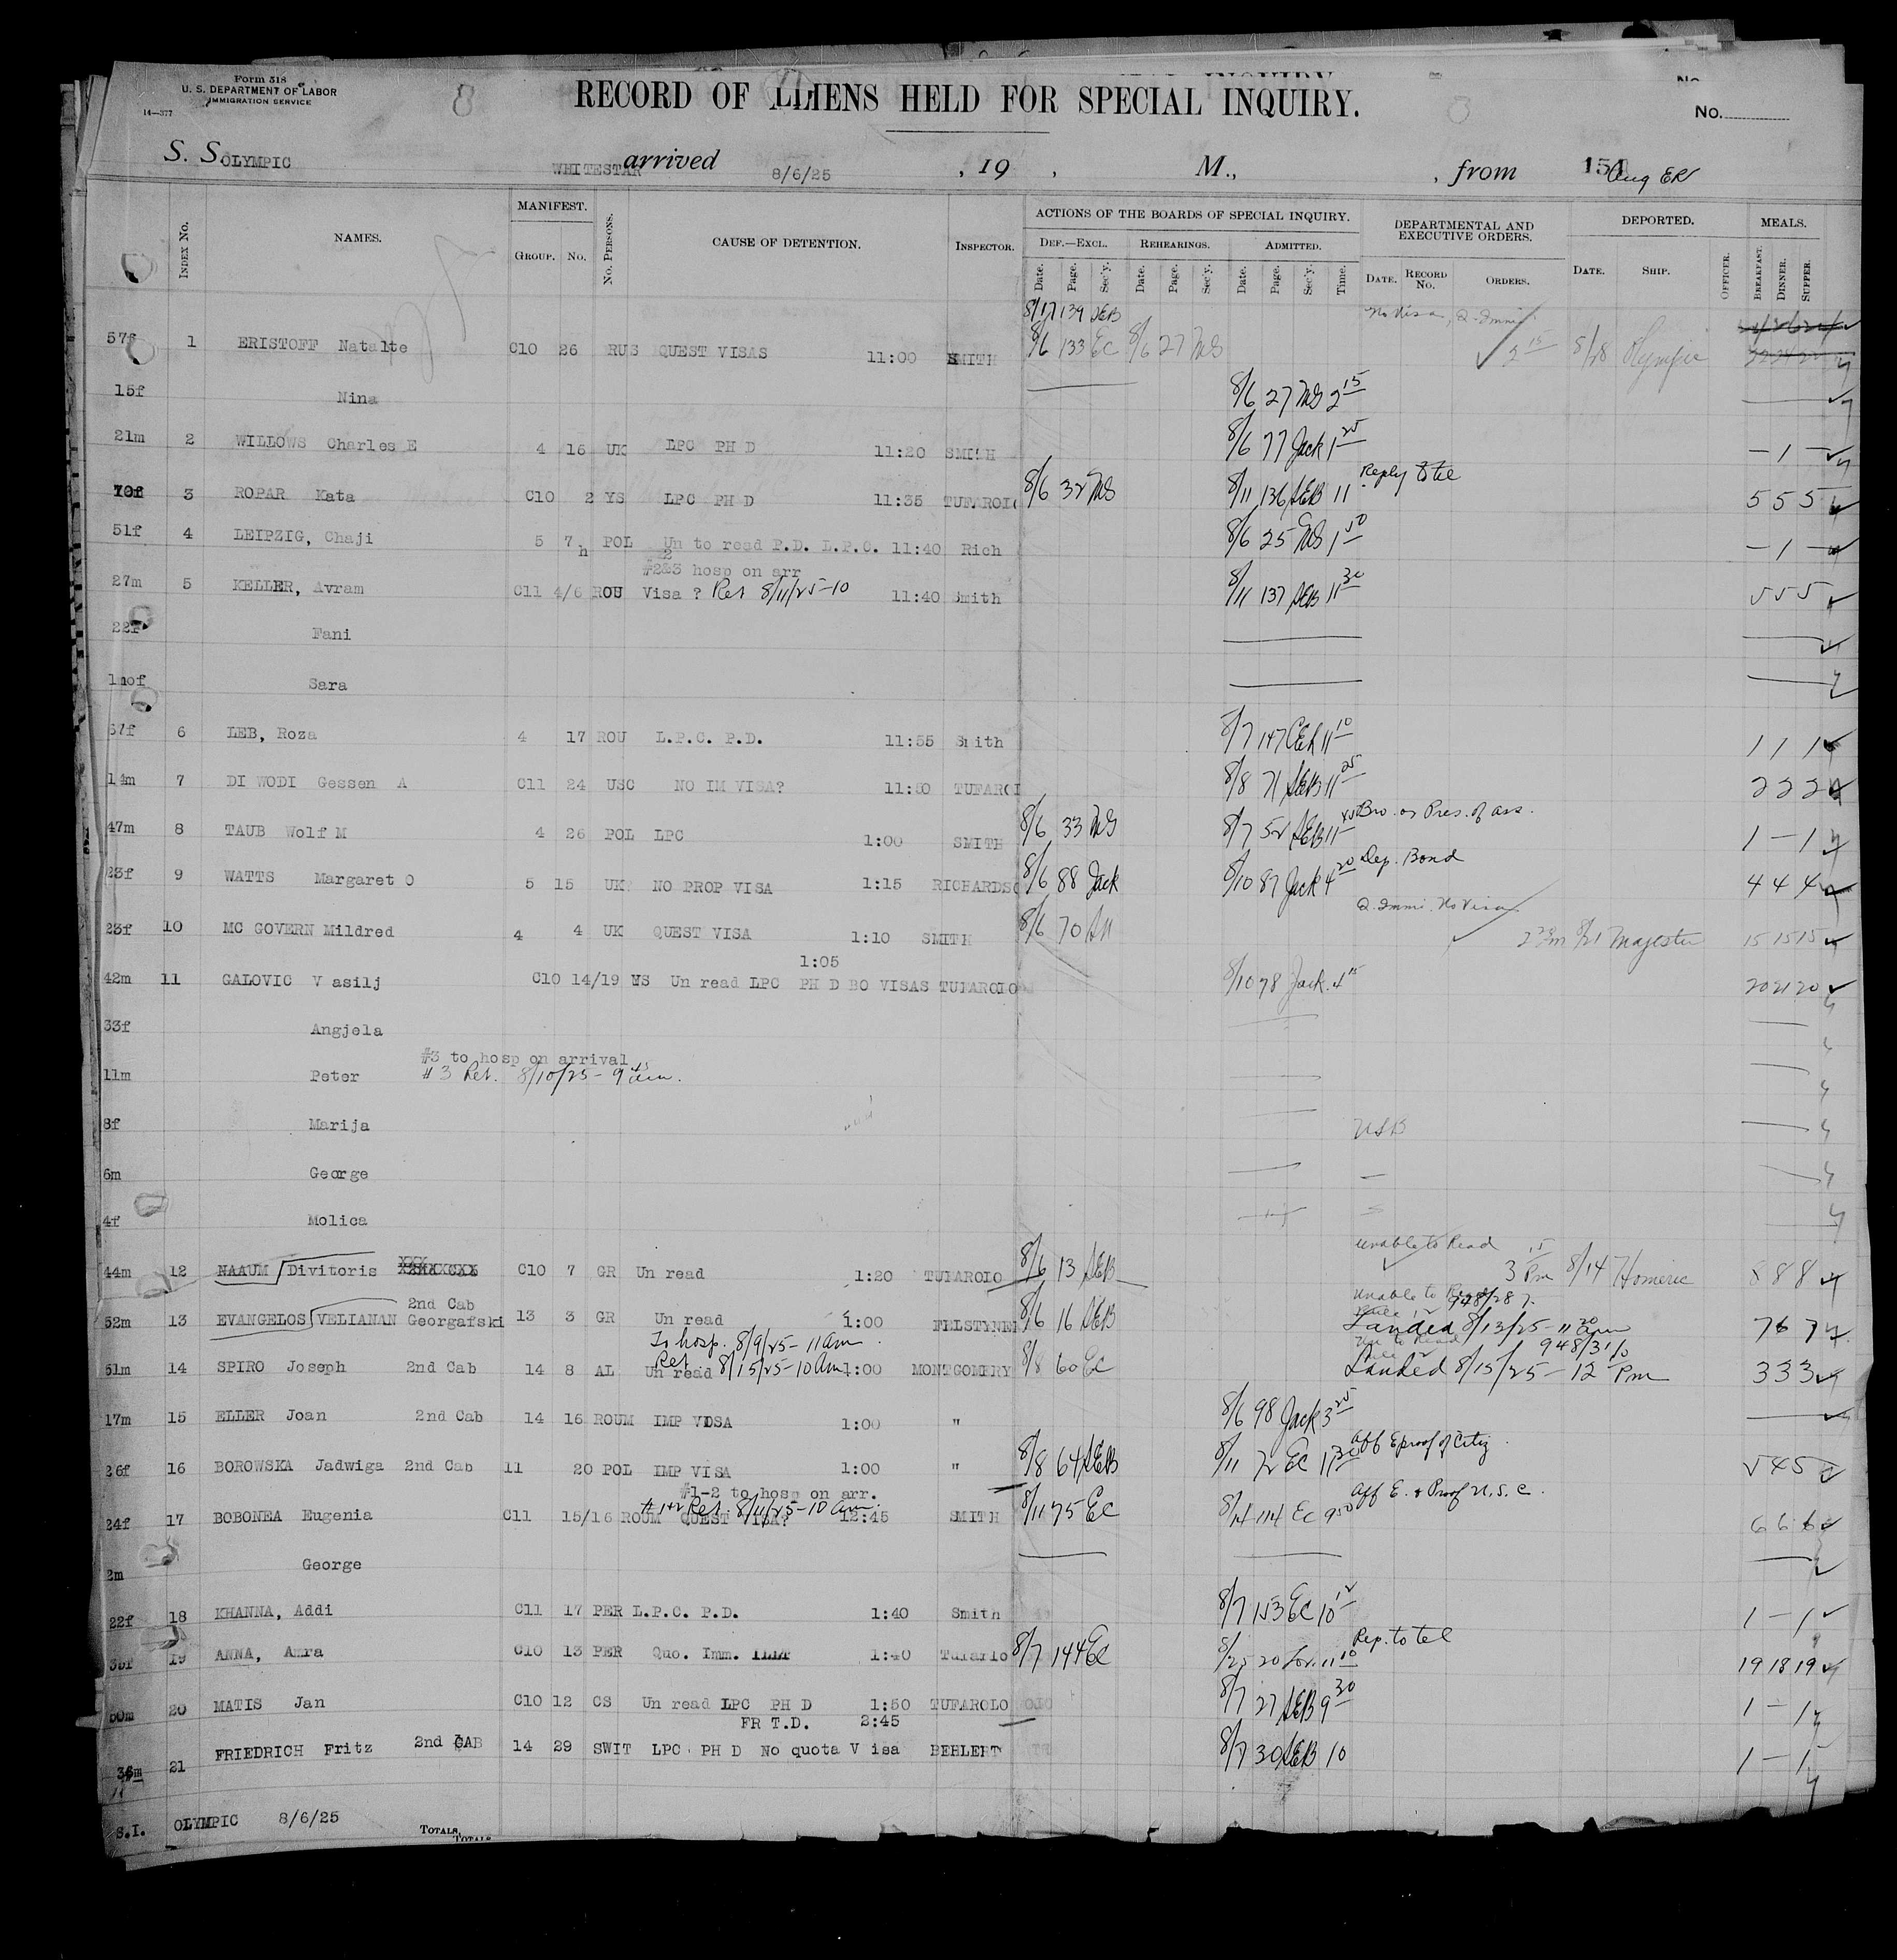 Form 518
U. S. DEPARTMENT OF LABOR
IMMIGRATION SERVICE
14—377
8
RECORD OF ALIENS HELD FOR SPECIAL INQUIRY.
No.
S. S. OLYMPIC WHITESTAR arrived 8/6/25 , 19 , M., , from 15 Aug ER
INDEX No. NAMES. MANIFEST. GROUP. No. No. PERSONS. CAUSE OF DETENTION. INSPECTOR. ACTIONS OF THE BOARDS OF SPECIAL INQUIRY. DEF.—EXCL. REHEARINGS. ADMITTED. DEPARTMENTAL AND EXECUTIVE ORDERS. DEPORTED. MEALS.
Date. Page. Sec'y. Date. Page. Sec'y. Date. Page. Sec'y. Time. DATE. RECORD No. ORDERS. DATE. SHIP. OFFICER. BREAKFAST. DINNER. SUPPER.
8/17 139 SEB No Visa, Q. Immi
57f 1 ERISTOFF Natalte C10 26 RUS QUEST VISAS 11:00 SMITH 8/6 133 EC 8/6 27 MS 3 15 8/28 Olympic
15f Nina 8/6 27 MS 2 15
21m 2 WILLOWS Charles E 4 16 UK LPC PH D 11:20 SMITH 8/6 77 Jack 1 25 — 1 —
10f 3 ROPAR Kata C10 2 YS LPC PH D 11:35 TUFAROLO 8/6 32 MS 8/11 136 SEB 11 Reply to tel 5 5 5
51f 4 LEIPZIG, Chaji 5 7 POL Un to read P.D. L.P.C. 11:40 Rich 8/6 25 MS 1 50 — 1 —
#2&3 hosp on arr
27m 5 KELLER, Avram C11 4/6 ROU Visa ? Ret 8/11/25-10 11:40 Smith 8/11 137 SEB 11 30 5 5 5
22f Fani
1mof Sara
57f 6 LEB, Roza 4 17 ROU L.P.C. P.D. 11:55 Smith 8/7 147 CER 11 10 1 1 1
14m 7 DI WODI Gessen A C11 24 USC NO IM VISA? 11:50 TUFAROL 8/8 71 SEB 11 25 2 2 2
47m 8 TAUB Wolf M 4 26 POL LPC 1:00 SMITH 8/6 33 MS 8/7 52 SEB 11 Bro. or Pres. of ass. 1 — 1
23f 9 WATTS Margaret O 5 15 UK NO PROP VISA 1:15 RICHARDSO 8/6 88 Jack 8/10 87 Jack 4 20 Dep. Bond 4 4 4
Q. Immi. No Visa
23f 10 MC GOVERN Mildred 4 4 UK QUEST VISA 1:10 SMITH 8/6 70 8/21 Majestic 15 15 15
1:05
42m 11 GALOVIC V asilj C10 14/19 Un read LPC PH D BO VISAS TUFAROLO 8/10 78 Jack. 4 15 20 21 20
33f Angjela
#3 to hosp on arrival
11m Peter #3 Ret. 8/10/25 - 9 45 am.
8f Marija
6m George
4f Molica
Unable to Read
44m 12 NAAUM Divitoris C10 7 GR Un read 1:20 TUFAROLO 8/6 13 SEB 3 15 Pm 8/14 Homeric 8 8 8
Unable to Read
2nd Cab
52m 13 EVANGELOS VELIANAN Georgafski 13 3 GR Un read 1:00 FELSTYNER 8/6 16 SEB Landed 8/13/25 - 11 20 am 7 6 7
To hosp. 8/9/25 - 11 am.
51m 14 SPIRO Joseph 2nd Cab 14 8 AL Un read Ret 8/15/25 - 10 Am 1:00 MONTGOMERY 8/8 60 EC Landed 8/15/25 - 12 Pm 3 3 3
17m 15 ELLER Joan 2nd Cab 14 16 ROUM IMP VISA 1:00 " 8/6 98 Jack 3 25
26f 16 BOROWSKA Jadwiga 2nd Cab 11 20 POL IMP VISA 1:00 " 8/8 64 SEB 8/11 72 EC 11 30 Aff E proof of Citiz. 5 4 5
#1-2 to hosp on arr.
#1+2 Ret. 8/11/25 - 10 am.
24f 17 BOBONEA Eugenia C11 15/16 ROUM QUEST VISA? 12:45 SMITH 8/11 75 EC 8/14 114 EC 9 50 Aff E. & Proof U.S.C. 6 6 6
2m George
22f 18 KHANNA, Addi C11 17 PER L.P.C. P.D. 1:40 Smith 8/7 153 EC 10 12 1 — 1
19 ANNA, Amra C10 13 PER Quo. Imm. 1:40 Tufarlo 8/7 144 EC 8/25 20 11 10 Rep. to tel 19 18 19
50m 20 MATIS Jan C10 12 CS Un read LPC PH D 1:50 TUFAROLO 8/7 27 SEB 9 30 1 — 1
FR T.D. 2:45
21 FRIEDRICH Fritz 2nd CAB 14 29 SWIT LPC PH D No quota V isa BEHLERT 8/7 30 SEB 10 1 — 1
S.I. OLYMPIC 8/6/25
TOTALS,